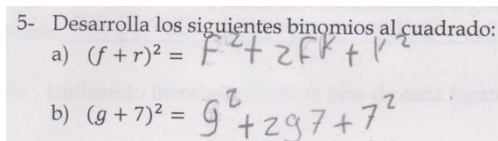 5- Desarrolla los siguientes binomios al cuadrado:
a) (f + r)² = F² + 2FR + r²
b) (g + 7)² = g² + 2g7 + 7²